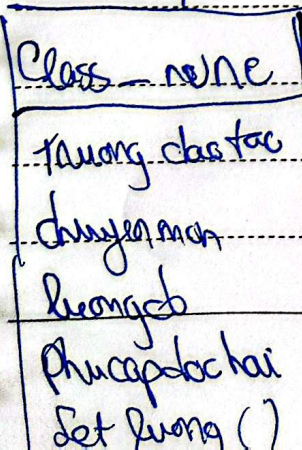 Class_nvne
truong daotac
chuyenmon
luongcb
phucapdochai
Set luong ()